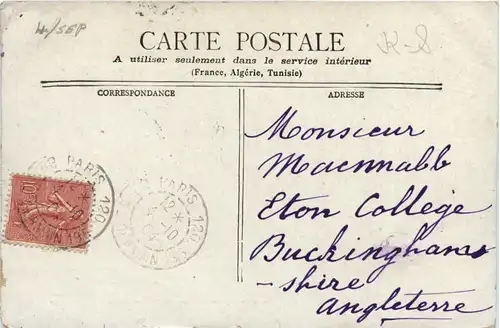 4/SEP
K-S
CARTE POSTALE
A utiliser seulement dans le service intérieur
(France, Algérie, Tunisie)
CORRESPONDANCE
ADRESSE
Monsieur
Macnnabb
Eton College
Buckinghams
-shire
Angleterre
PARIS 120
10
PARIS 120
12
-10